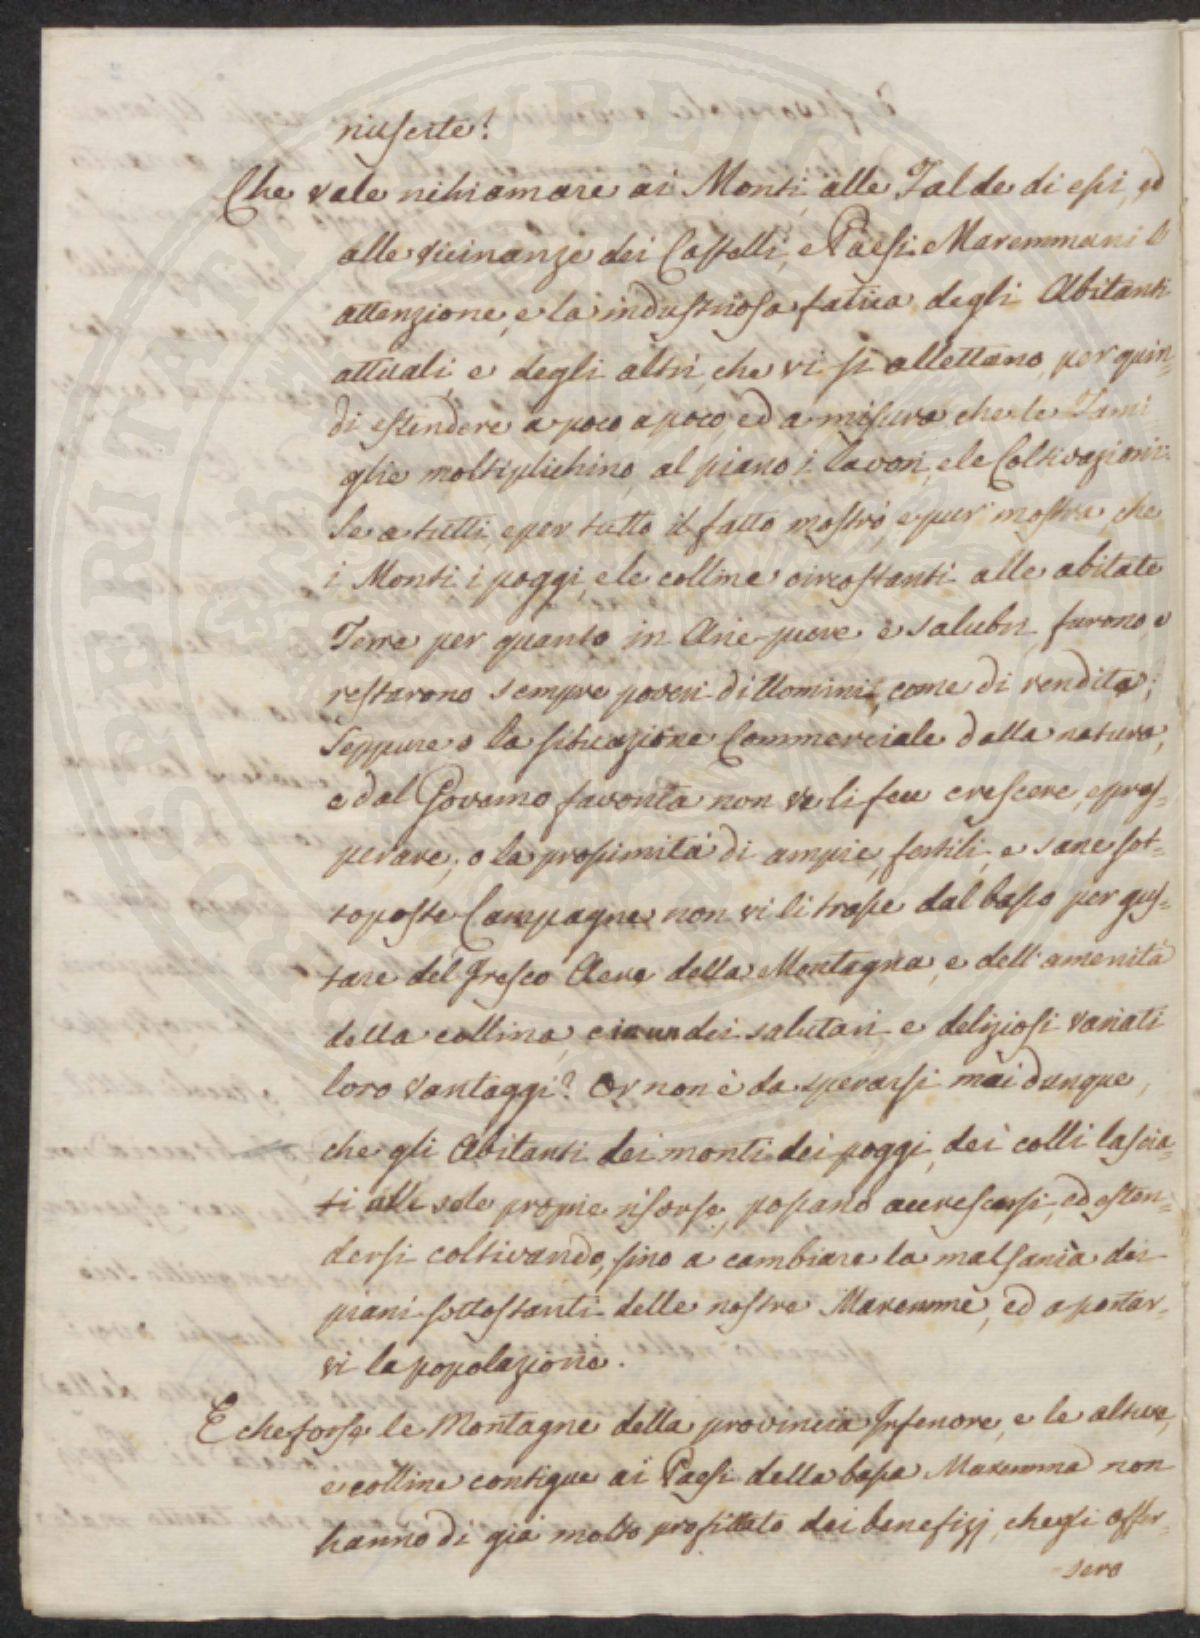 riuscite?
Che vale richiamare ai Monti, alle Falde di essi, ed
alle vicinanze dei Castelli, e Paesi Maremmani l'
attenzione, e la industriosa fatica degli Abitanti
attuali, e degli altri, che vi si allettano, per quin=
di estendere a poco a poco, ed a misura che le Fami
glie moltiplichino, al piano i lavori, e le Coltivazioni:
Se a tutti, e per tutto il fatto mostrò, e pur mostra, che
i Monti, i poggi, e le colline circostanti alle abitate
Terre per quanto in Arie pure e salubri furono e
restarono sempre poveri di Uomini, come di rendita;
Seppure o la situazione Commerciale dalla natura,
e dal Governo favorita non ve li fece crescere, e pros=
perare, o la prossimità di ampie, fertili, e sane sot=
toposte Campagne non vi li trasse dal basso per gus=
tare del Fresco Aere della Montagna, e dell'amenità
della collina, e dei salutari e deliziosi variati
loro vantaggi? Or non è da sperarsi mai dunque,
che gli Abitanti dei monti dei poggi, dei colli lascia
ti alle sole proprie risorse, possano accrescersi, ed esten=
dersi coltivando, sino a cambiare la malsanìa dei
piani sottostanti delle nostre Maremme, ed a portar=
vi la popolazione.
E che forse le Montagne della provincia Inferiore, e le alture,
e colline contigue ai Paesi della bassa Maremma non
hanno di già molto profittato dei benefizj, che gli offer=
sero